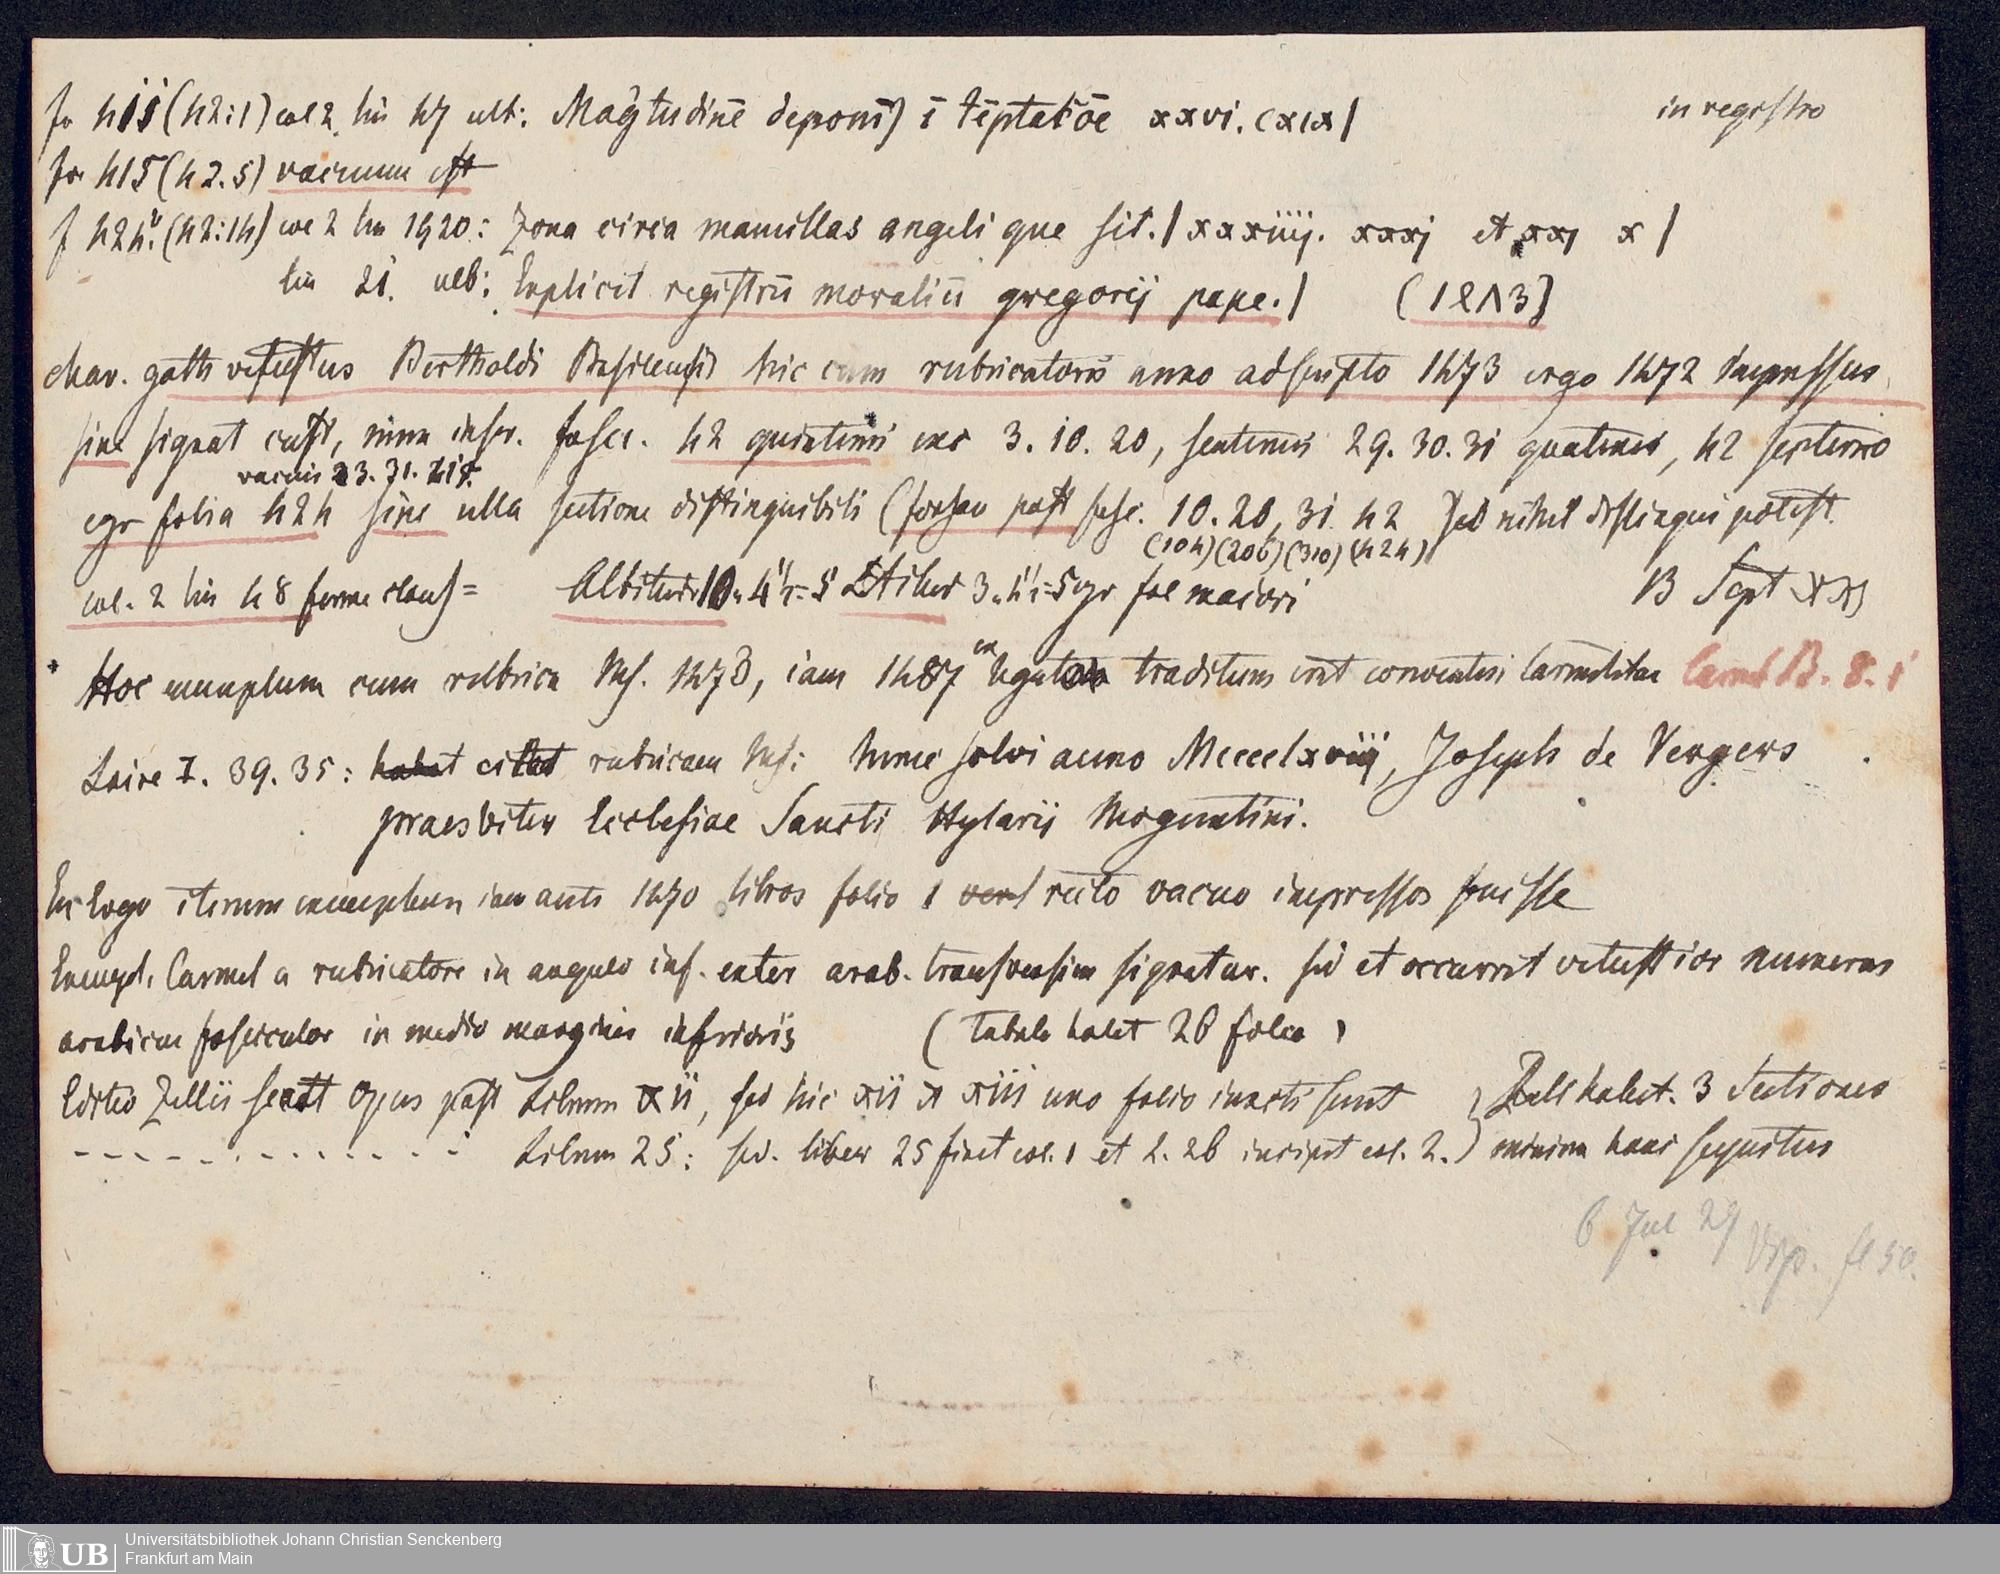 fo 411 (42:1) col 2. lin 47 ult: Magtudinē deponit) ī tēptatiōe xxvi. (xix| in registro
fo 415 (42.5) vacuum est
f 424. (42:14) col 2 lin 1920: Zona circa mamillas angeli que sit.| xxxiiij. xxxj et xxj x |
lin 21. ult: Explicit registrū moraliū gregorij pape.| (1473)
char. goth vetustus Bertholdi Basileensis hic cum rubricatoris anno adscripto 1473 ergo 1472 impressus
sine signat cust, num inser. fasci. 42 quinterni exc 3. 10. 20, senternis 29. 30. 31 quaternis, 42 septerno
vacuis 23. 31. 415.
ergo folia 424 sine ulla sectione distinguibili (forsan post fasc. 10. 20, 31. 42 sed nihil distingui potest.
(104) (206) (310) (424)
col. 2 lin 48 forma claus) = Altitudo 10. 4½ = 5 3. 4½ = 5 ergo fol maiori B Sept XX)
Hoc exemplum cum rubrica Ms. 1473, iam 1487 ex legato traditum erat conventui Carmelitae Carmel B. 8. 1
Laire I. 39. 35: habet citat rubricam Ms: hunc solvi anno Mcccclxviij, Joseph de Vergers
praesbiter Ecclesiae Sancti Hylarij Moguntini.
En ergo iterum exemplum iam ante 1470 libros folio 1 recto vacuo impressos fuisse
Exempl. Carmel a rubricatore in angulo inf. exter arab. transversim signatur. sed et occurrit vetustior numerus
arabicus fascicular in medio marginis inferioris (tabula habet 26 folia)
Editio Zellii secat Opus post Librum xii, sed hic xii et xiii uno folio iuncti sunt } Zell habet. 3 Sectiones
- - - - - - - - - - - - Librum 25: sed. liber 25 finit col. 1 et L. 26 incipit col. 2. ) minime hanc sequitur
6 Jul 29
fl 50.
Universitätsbibliothek Johann Christian Senckenberg
Frankfurt am Main
UB